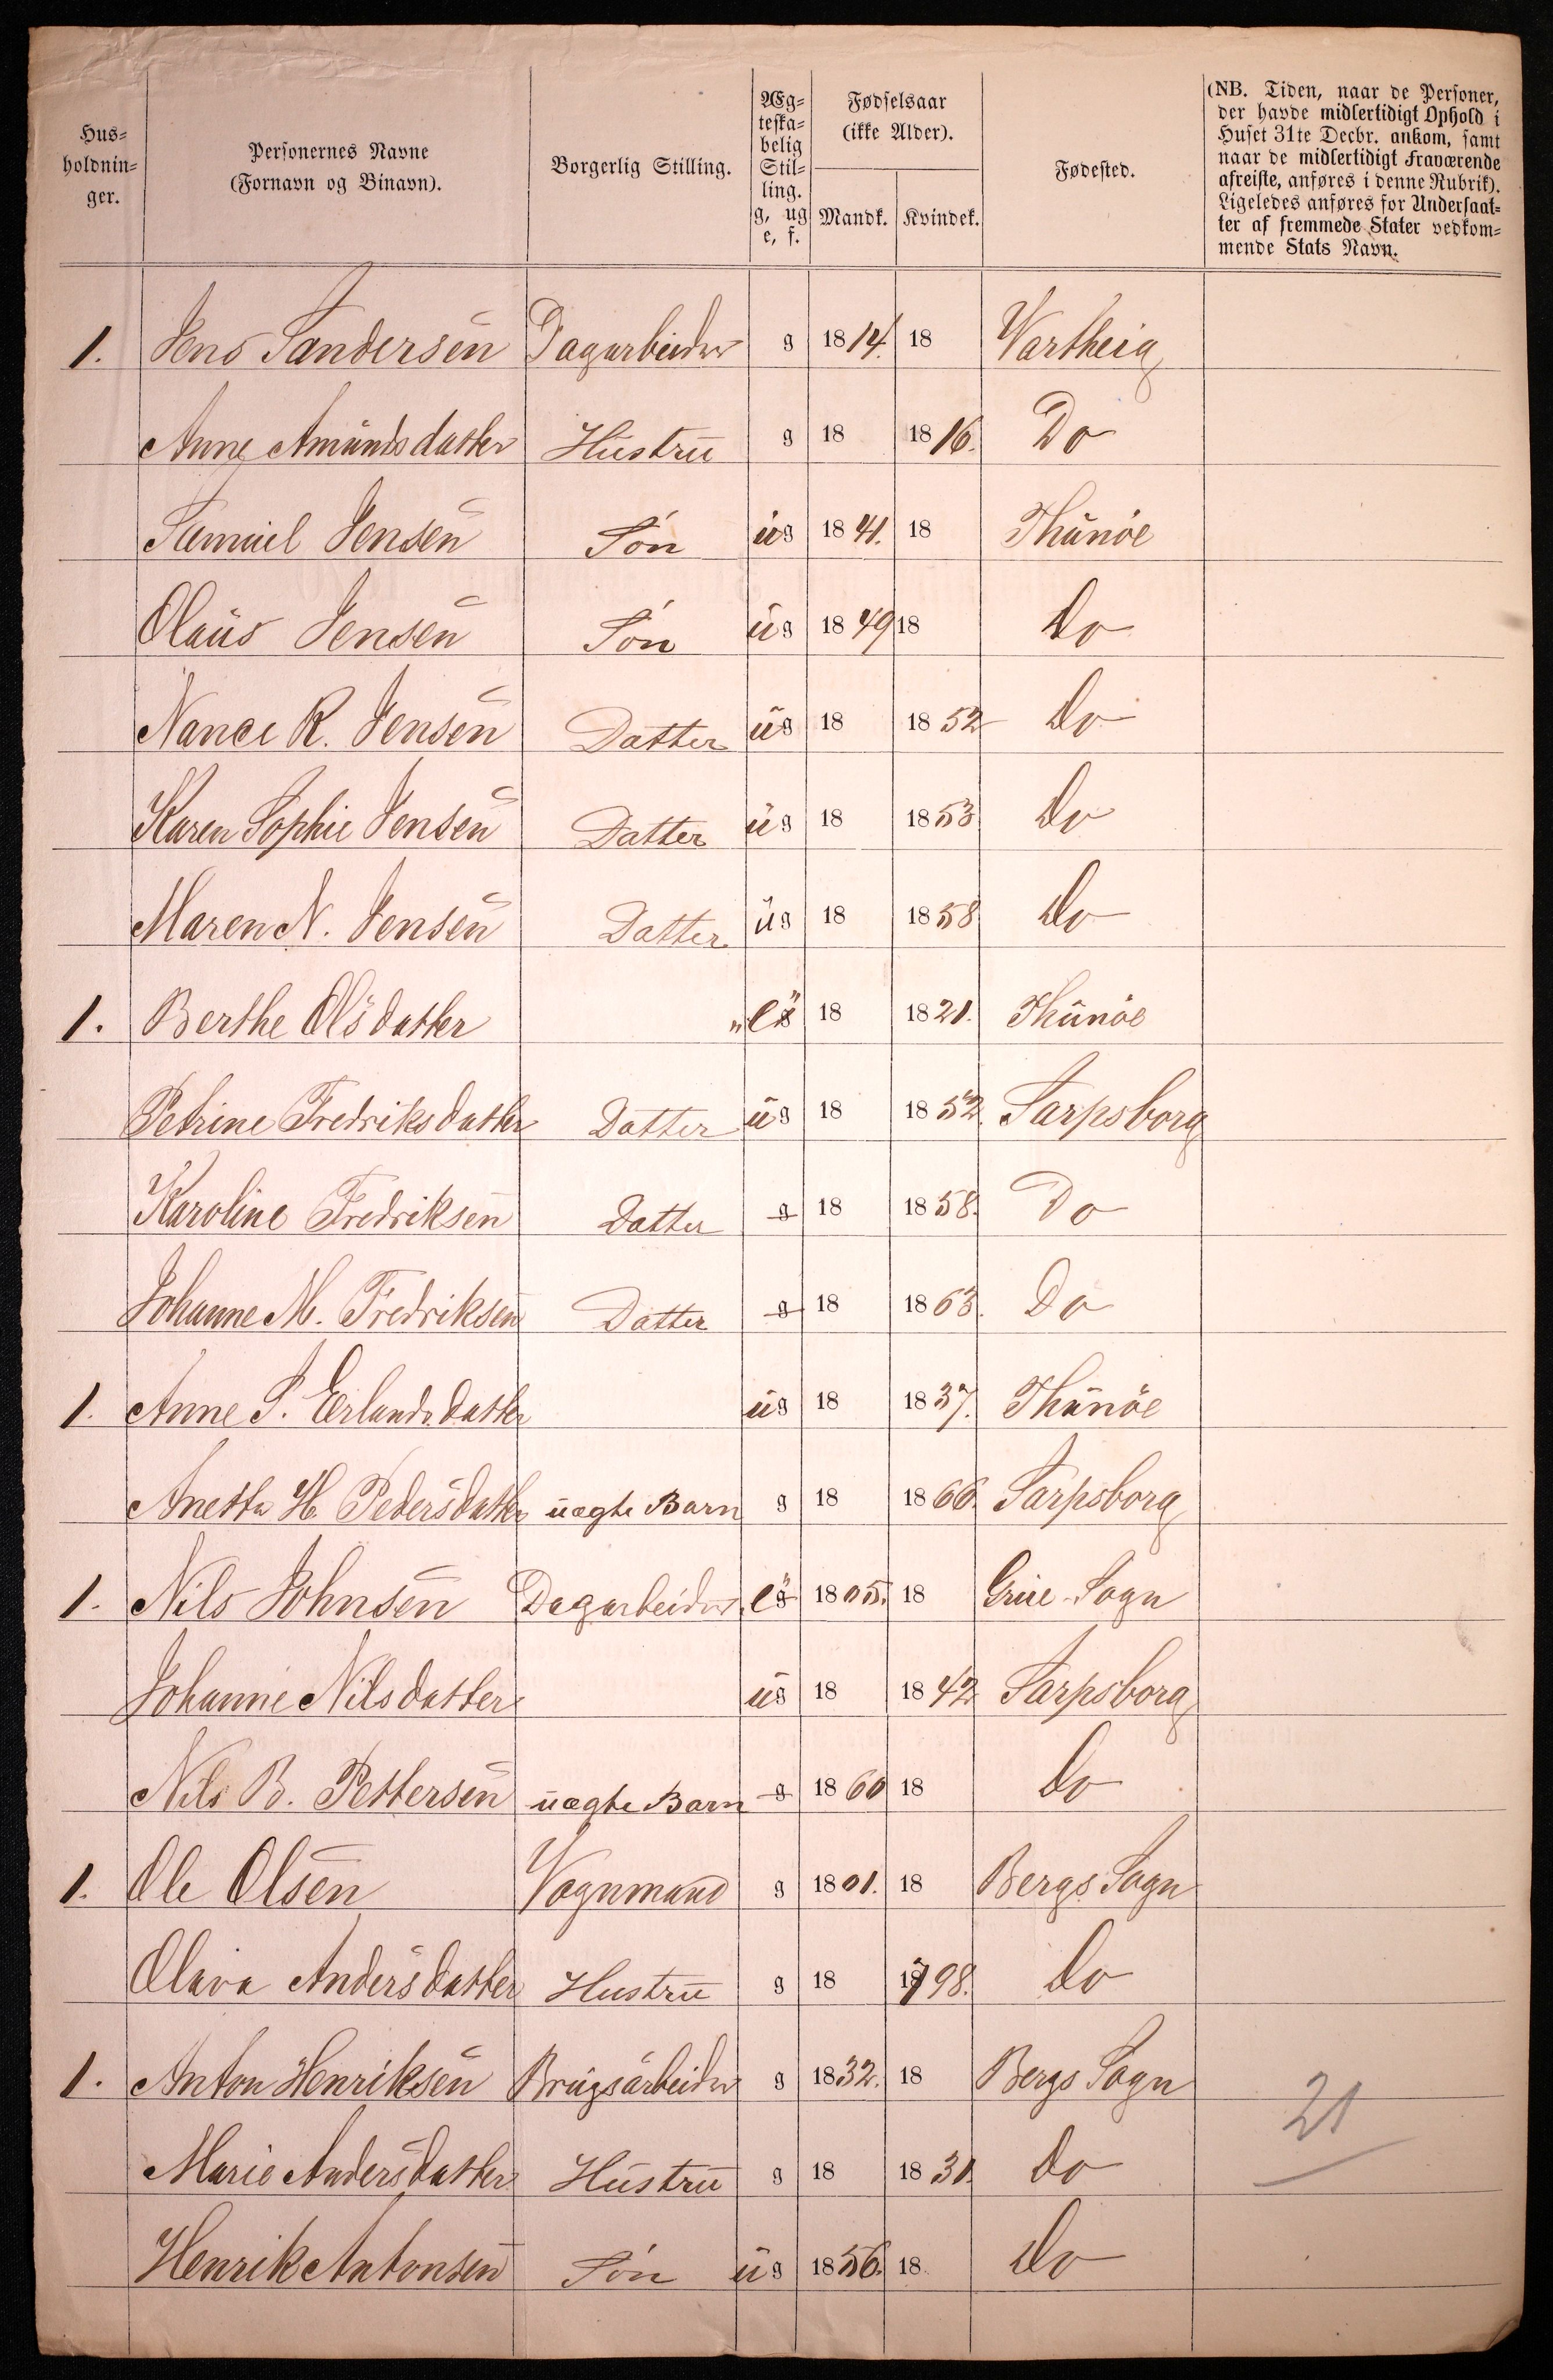 Hus-
holdnin-
ger.
Personernes Navne
(Fornavn og Binavn).
Borgerlig Stilling.
Æg-
teska-
belig
Stil-
ling.
g, ug
e, f.
Fødselsaar
(ikke Alder).
Mandk. Kvindek.
Fødested.
(NB. Tiden, naar de Personer,
der havde midlertidigt Ophold i
Huset 31te Decbr. ankom, samt
naar de midlertidigt Fraværende
afreiste, anføres i denne Rubrik).
Ligeledes anføres for Undersaat-
ter af fremmede Stater vedkom-
mende Stats Navn.
1. Jens Sandersen Dagarbeider g 1814. 18 Vartheig
Anne Amundsdatter Hustru g 18 1816. Do
Samuel Jensen Søn ug 1841. 18 Thunøe
Olaus Jensen Søn ug 1849 18 Do
Nance R. Jensen Datter ug 18 1852 Do
Karen Sophie Jensen Datter ug 18 1853 Do
Maren N. Jensen Datter ug 18 1858 Do
1. Berthe Olsdatter "e" g 18 1821. Thunøe
Petrine Fredriksdatter Datter ug 18 1852. Sarpsborg
Karoline Fredriksen Datter g 18 1858. Do
Johanne M. Fredriksen Datter g 18 1863. Do
1. Anne S. Erlandsdatter ug 18 1837. Thunøe
Anetta H. Pedersdatter uægte Barn g 18 1866. Sarpsborg
1. Nils Johnsen Dagarbeider "e" g 1805. 18 Grue Sogn
Johanne Nilsdatter ug 18 1842 Sarpsborg
Nils B. Pettersen uægte Barn g 1860 18 Do
1. Ole Olsen Vognmand g 1801. 18 Bergs Sogn
Olava Andersdatter Hustru g 18 1798. Do
1. Anton Henriksen Brugsarbeider g 1832. 18 Bergs Sogn
Marie Andersdatter Hustru g 18 1831. Do
21
Henrik Antonsen Søn ug 1856. 18 Do